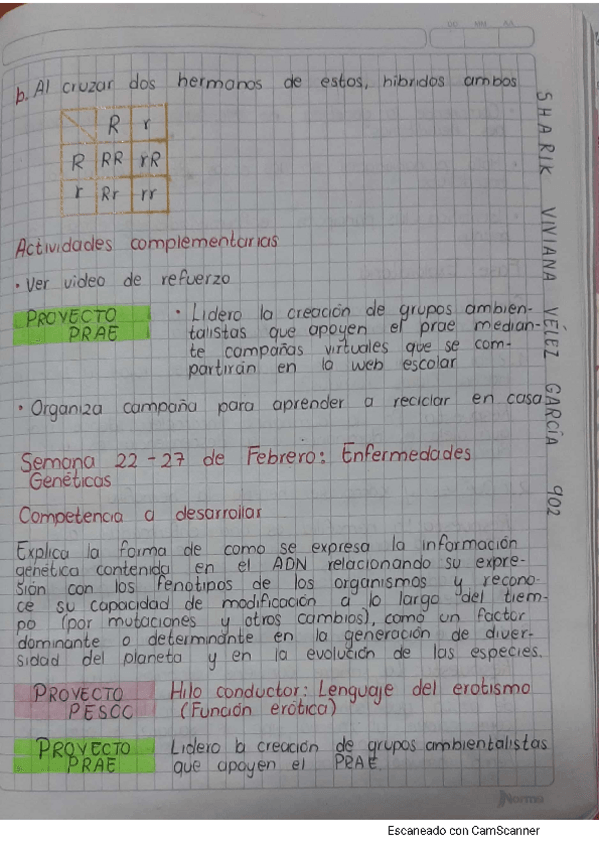 DD MM AA
b. Al cruzar dos hermanos de estos, hibridos ambos
R r
R RR rR
r Rr rr
Actividades complementarias
• Ver video de refuerzo
PROYECTO PRAE
• Lidero la creación de grupos ambien-
talistas que apoyen el prae median-
te campañas virtuales que se com-
partirán en la web escolar
• Organiza campaña para aprender a reciclar en casa
Semana 22-27 de Febrero: Enfermedades
Genéticas
Competencia a desarrollar
Explica la forma de como se expresa la información
genética contenida en el ADN relacionando su expre-
sión con los fenotipos de los organismos y recono-
ce su capacidad de modificación a lo largo del tiem-
po (por mutaciones y otros cambios), como un factor
dominante o determinante en la generación de diver-
sidad del planeta y en la evolución de las especies.
PROYECTO PESCC
Hilo conductor: Lenguaje del erotismo
(Función erótica)
PROYECTO PRAE
Lidero la creación de grupos ambientalistas
que apoyen el PRAE
SHARIK VIVIANA VÉLEZ GARCÍA 902
Norma
Escaneado con CamScanner